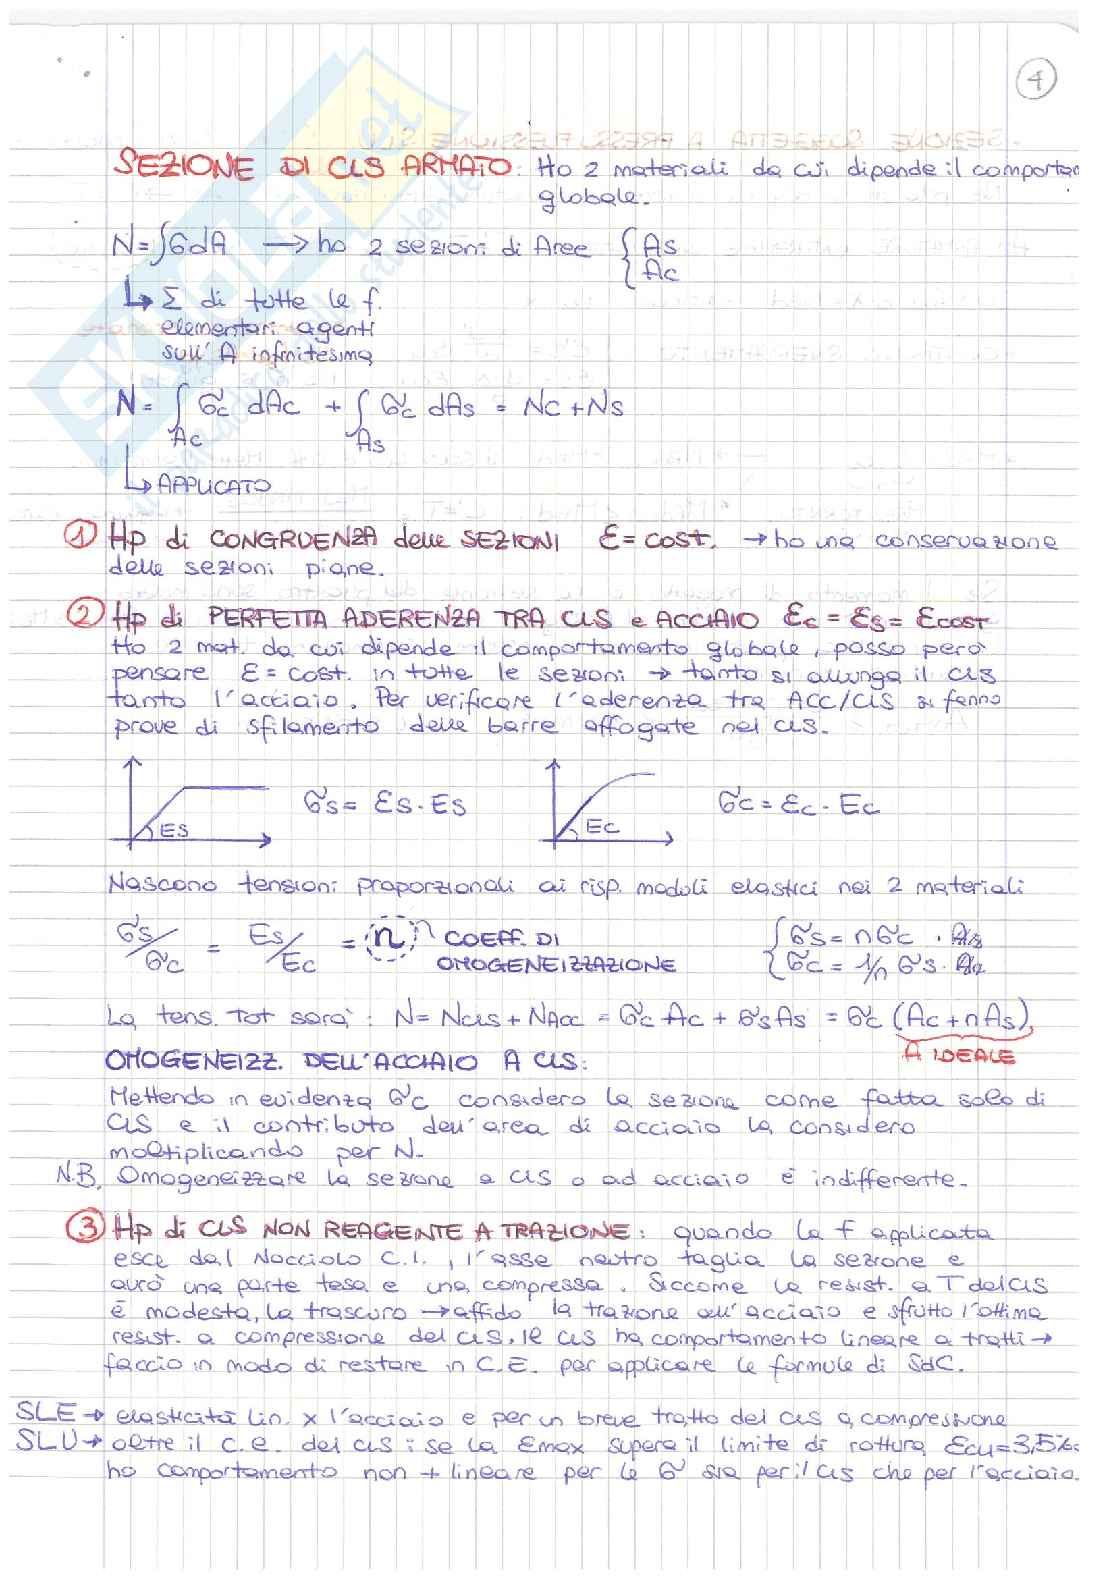 4
SEZIONE DI CLS ARMATO: Ho 2 materiali da cui dipende il comportam
globale.
N = ∫σdA → ho 2 sezioni di Aree { As
Ac
↳ Σ di tutte le f.
elementari agenti
sull'A infinitesima
N = ∫Ac σc dAc + ∫As σc dAs = Nc + Ns
↳ APPLICATO
① Hp di CONGRUENZA delle SEZIONI ε = cost. → ho una conservazione
delle sezioni piane.
② Hp di PERFETTA ADERENZA TRA CLS e ACCIAIO εc = εs = εcost
Ho 2 mat. da cui dipende il comportamento globale, posso però
pensare ε = cost. in tutte le sezioni → tanto si allunga il cls
tanto l'acciaio. Per verificare l'aderenza tra ACC/CLS si fanno
prove di sfilamento delle barre affogate nel cls.
Es σs = εs · Es Ec σc = εc · Ec
Nascono tensioni proporzionali ai risp. moduli elastici nei 2 materiali
σs/σc = Es/Ec = n COEFF. DI
OMOGENEIZZAZIONE
{ σs = nσc ·
σc = 1/n σs ·
La tens. Tot sarà: N = Ncls + Nacc = σc Ac + σs As = σc (Ac + n As)
A IDEALE
OMOGENEIZZ. DELL'ACCIAIO A CLS:
Mettendo in evidenza σc considero la sezione come fatta solo di
cls e il contributo dell'area di acciaio la considero
moltiplicando per N.
N.B. Omogeneizzare la sezione a cls o ad acciaio è indifferente.
③ Hp di CLS NON REAGENTE A TRAZIONE: quando la f applicata
esce dal Nocciolo C.I., l'asse neutro taglia la sezione e
avrò una parte tesa e una compressa. Siccome la resist. a T del cls
è modesta, la trascuro → affido la trazione all'acciaio e sfrutto l'ottima
resist. a compressione del cls. Il cls ha comportamento lineare a tratti →
faccio in modo di restare in C.E. per applicare le formule di SdC.
SLE → elasticità lin. x l'acciaio e per un breve tratto del cls a compressione
SLU → oltre il c.e. del cls: se la εmax supera il limite di rottura εcu = 3,5‰
ho comportamento non + lineare per le σ sia per il cls che per l'acciaio.
SKUOLA.not